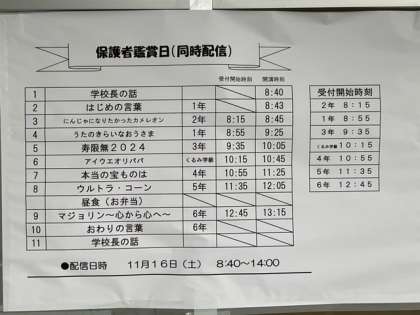 保護者鑑賞日(同時配信)
受付開始時刻 開演時刻
1 学校長の話 8:40
2 はじめの言葉 1年 8:43
3 にんじゃになりたかったカメレオン 2年 8:15 8:45
4 うたのきらいなおうさま 1年 8:55 9:25
5 寿限無2024 3年 9:35 10:05
6 アイウエオリババ くるみ学級 10:15 10:45
7 本当の宝ものは 4年 10:55 11:25
8 ウルトラ・コーン 5年 11:35 12:05
昼食(お弁当)
9 マジョリン～心から心へ～ 6年 12:45 13:15
10 おわりの言葉 6年
11 学校長の話
受付開始時刻
2年 8:15
1年 8:55
3年 9:35
くるみ学級 10:15
4年 10:55
5年 11:35
6年 12:45
●配信日時 11月16日(土) 8:40～14:00